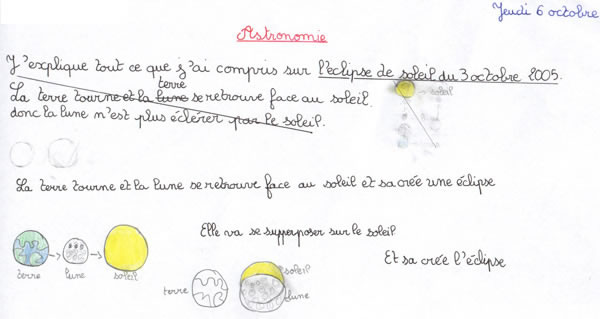 Jeudi 6 octobre
Astronomie
J'explique tout ce que j'ai compris sur l'éclipse de soleil du 3 octobre 2005.
terre
La terre tourne et la lune se retrouve face au soleil
donc la lune n'est plus éclérer par le soleil.
soleil
La terre tourne et la lune se retrouve face au soleil et sa crée une éclipse
Elle va se supperposer sur le soleil
Et sa crée l'éclipse
terre lune soleil
soleil
terre lune